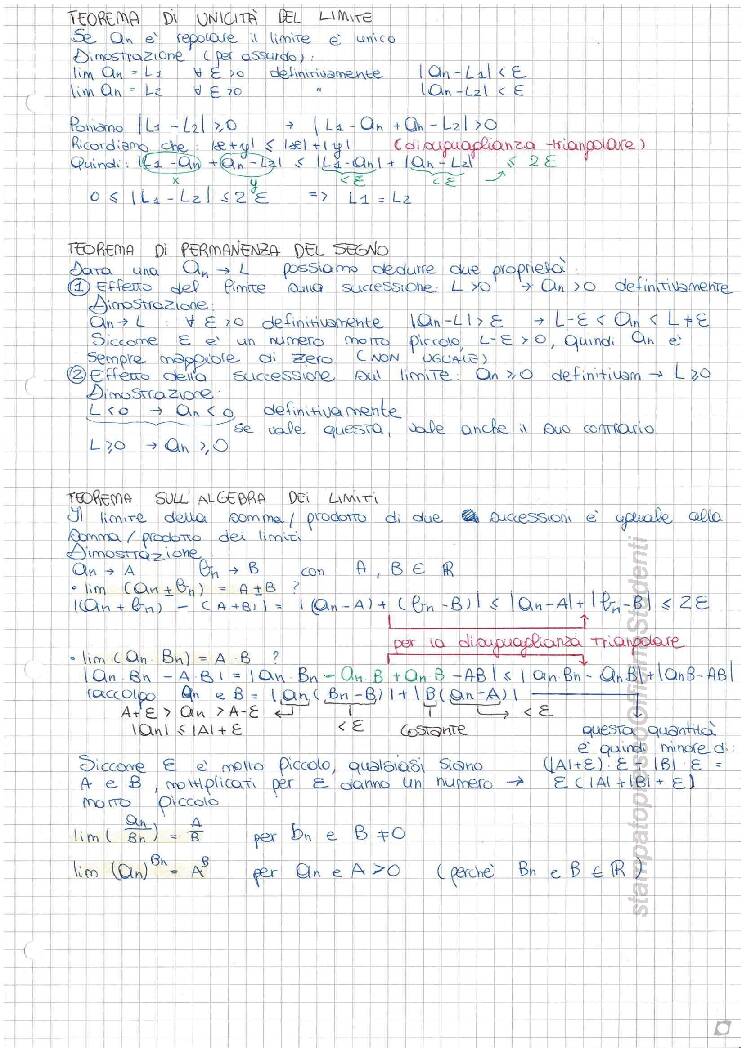 TEOREMA DI UNICITÀ DEL LIMITE
Se an è regolare il limite è unico
Dimostrazione (per assurdo):
lim an = L1 ∀ ε >0 definitivamente |an-L1| < ε
lim an = L2 ∀ ε >0 " |an-L2| < ε
Poniamo |L1 - L2| ⩾0 → |L1 - an + an - L2| >0
Ricordiamo che: |x+y| ≤ |x| + |y| (disuguaglianza triangolare)
Quindi: |L1 - an + an - L2| ≤ |L1 - an| + |an - L2| ≤ 2ε
x y <ε <ε
0 ≤ |L1 - L2| ≤ 2ε => L1 = L2
TEOREMA DI PERMANENZA DEL SEGNO
Data una an → L possiamo dedurre due proprietà:
① Effetto del limite sulla successione: L>0 → an >0 definitivamente
Dimostrazione:
an → L ∀ ε >0 definitivamente |an-L| > ε → L-ε < an < L+ε
Siccome ε è un numero molto piccolo, L-ε >0, quindi an è
sempre maggiore di zero (NON UGUALE)
② Effetto della successione sul limite: an ⩾0 definitivam → L ⩾0
Dimostrazione:
L<0 → an <0 definitivamente
se vale questa, vale anche il suo contrario
L ⩾0 → an ⩾0
TEOREMA SULL'ALGEBRA DEI LIMITI
Il limite della somma/prodotto di due successioni è uguale alla
somma/prodotto dei limiti
Dimostrazione
an → A bn → B con A, B ∈ ℝ
• lim (an ± bn) = A±B ?
|(an + bn) - (A+B)| = |(an-A) + (bn-B)| ≤ |an-A| + |bn-B| ≤ 2ε
per la disuguaglianza triangolare
• lim (an · Bn) = A · B ?
|an · Bn - A·B| = |an · Bn - an·B + an·B - AB| ≤ |an·Bn - an·B| + |anB-AB|
raccolgo an e B = |an(Bn-B)| + |B(an-A)|
A+ε > an > A-ε <ε costante <ε questa quantità
|an| ≤ |A| + ε è quindi minore di:
Siccome ε è molto piccolo, qualsiasi siano (|A|+ε)·ε + |B|·ε =
A e B, moltiplicati per ε danno un numero → ε(|A|+|B|+ε)
molto piccolo
lim (an/Bn) = A/B per bn e B ≠0
lim (an)^Bn = A^B per an e A >0 (perchè Bn e B ∈ ℝ)